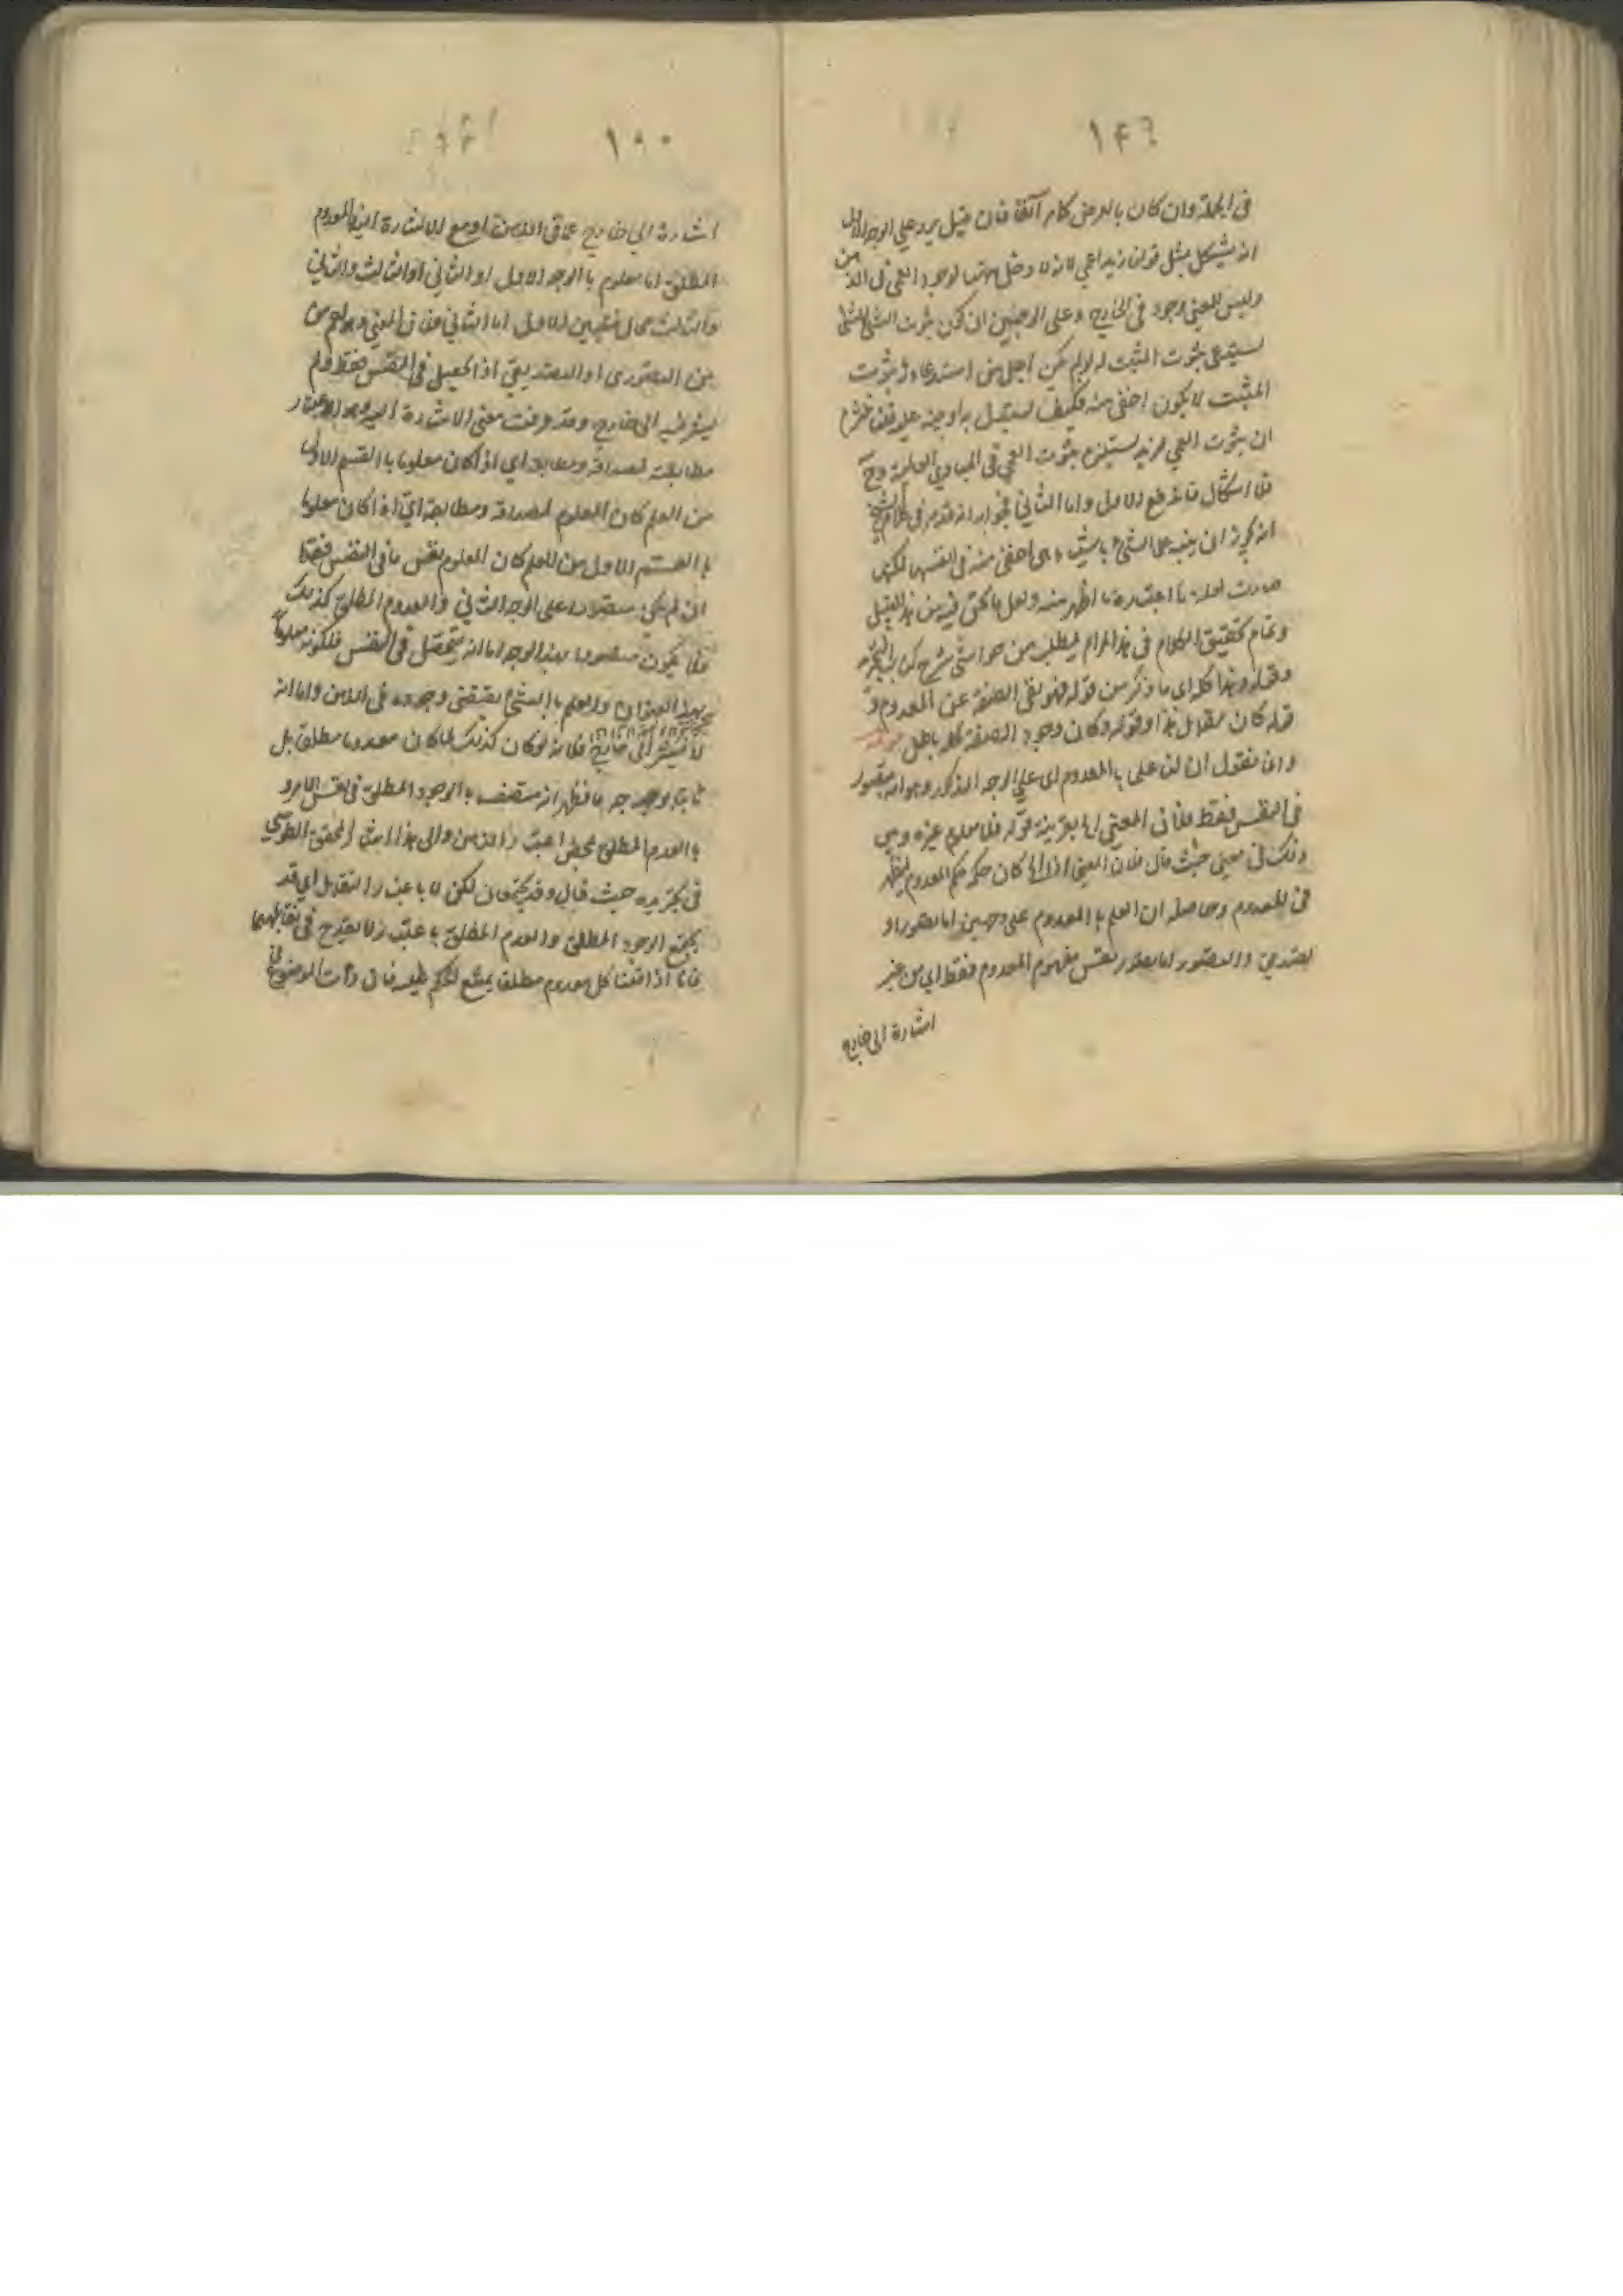 ١٤٦
في الجملة وان كان بالعرض كما مر آنفا فان قيل يرد على الوجه الاول
انه يشكل بمثل قولنا زيد اعمى لانه لا دخل لوجود العمى في الذهن
وليس للعمى وجود في الخارج وعلى الوجهين ان كون ثبوت الشئ للشئ
يستدعي ثبوت المثبت له لو لم يكن اجلى من استدعاء ثبوت
المثبت لا يكون اخفى منه فكيف يستدل به او ينبه عليه قلنا
ان ثبوت العمى لزيد يستلزم ثبوت العمى في المبادي العالية وح
فلا اشكال فاندفع الاول واما الثاني فجوابه انه قد مر في كلام الشيخ
انه يجوز ان ينبه على الشئ باشياء هي اخفى منه في انفسها لكنها
صارت لعلة ما اعتبارها اظهر منه ولعل ما نحن فيه من هذا القبيل
وتمام تحقيق الكلام في هذا المرام يطلب من حواشي شرح كتاب
وقوله وهذا كله اي ما ذكر من قوله فهو نفي الصفة عن المعدوم و
قوله كان مقابل هذا وقوله وكان وجود الصفة كله باطل
وانا نقول ان لنا علما بالمعدوم اي على الوجه المذكور وهو انه متصور
في النفس فقط فلان المعنى بقرينة قوله فلا معلوم غيره وهي
ذلك في معنى حيث قال فلان المعنى اذا كان حكم المعدوم
في المعدوم وحاصله ان العلم بالمعدوم على وجهين اما بتصور او
بتصديق والتصور اما بتصور نفس مفهوم المعدوم فقط اي من غير
اشارة الى خارج
١٥٠
اشارة الى خارج عما في الذهن او مع الاشارة اليه فالمعدوم
المطلق اما معلوم بالوجه الاول او الثاني او الثالث والثاني
والثالث محال فتعين الاول اما الثاني فلان المعنى وهو اعم من
من التصوري او التصديقي اذا تحصل في النفس فقط ولم
يشر فيه الى خارج وقد عرفت معنى الاشارة اليه وهو اعتبار
مطابقته لمصداقه ومطابقه اي اذا كان معلوما بالقسم الاول
من العلم كان المعلوم لمصداقه ومطابقه اي اذا كان معلوما
بالقسم الاول من العلم كان المعلوم نفس ما في النفس فقط
ان لم يكن متصورا على الوجه الثاني والمعدوم المطلق كذلك
فلا يكون متصورا بهذا الوجه اما انه يتحصل في النفس فلكونه معلوما
بهذا العنوان والعلم بالشئ يقتضي وجوده في الذهن واما انه
لا يشير الى خارج فلانه لو كان كذلك لما كان معدوما مطلقا بل
ثابتا بوجه ما فظهر انه متصف بالوجود المطلق في نفس الامر و
بالعدم المطلق بمحض اعتبار الذهن والى هذا اشار المحقق الطوسي
في تجريده حيث قال وقد يجتمعان لكن لا باعتبار التقابل اي قد
يجتمع الوجود المطلق والعدم المطلق باعتبار لا يقدح في تقابلهما
فانا اذا قلنا كل معدوم مطلق يمتنع الحكم عليه فان ذات الموضوع